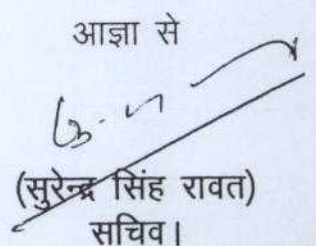 आज्ञा से
(सुरेन्द्र सिंह रावत)
सचिव।